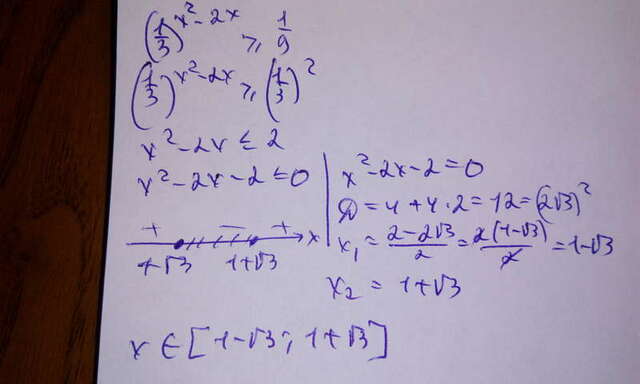 (1/3)^(x²-2x) ⩾ 1/9
(1/3)^(x²-2x) ⩾ (1/3)²
x²-2x ≤ 2
x²-2x-2 ≤ 0
+ - + x
1-√3 1+√3
x²-2x-2=0
D=4+4·2=12=(2√3)²
x₁ = (2-2√3)/2 = 2(1-√3)/2 = 1-√3
x₂ = 1+√3
x ∈ [1-√3; 1+√3]